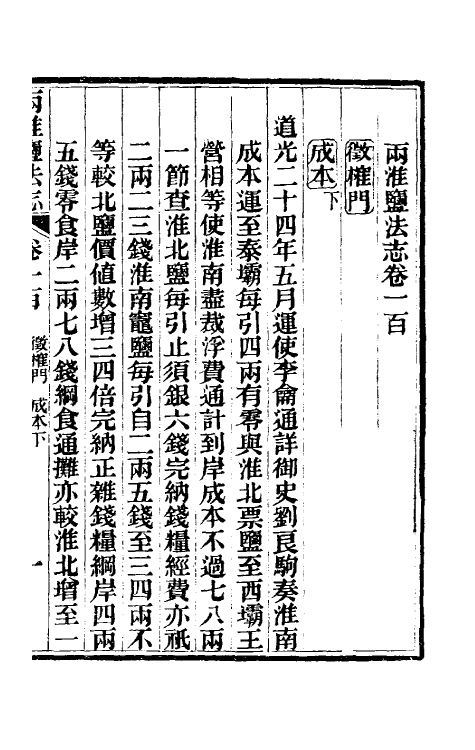 兩淮鹽法志卷一百
徵榷門
成本下
道光二十四年五月運使李僴通詳御史劉良駒奏淮南
成本運至泰壩每引四兩有零與淮北票鹽至西壩王
營相等使淮南盡裁浮費通計到岸成本不過七八兩
一節查淮北鹽每引止須銀六錢完納錢糧經費亦祇
二兩二三錢淮南竈鹽每引自二兩五錢至三四兩不
等較北鹽價値數增三四倍完納正雜錢糧綱岸四兩
五錢零食岸二兩七八錢綱食通攤亦較淮北增至一
兩淮鹽法志 卷一百 徵榷門 成本下 一